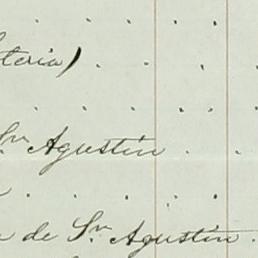 teria)
Sn Agustín
de Sn Agustín